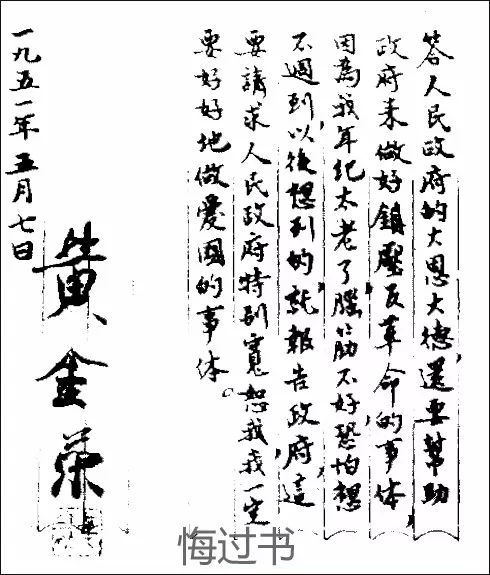 答人民政府的大恩大德，還要幫助
政府来做好鎮壓反革命的事体，
因為我年纪太老了，腦筋不好，恐怕想
不週到，以後想到的，就報告政府，這
要請求人民政府特别寬恕我，我一定
要好好地做愛國的事体。
一九五一年五月七日
黄金荣
悔过书